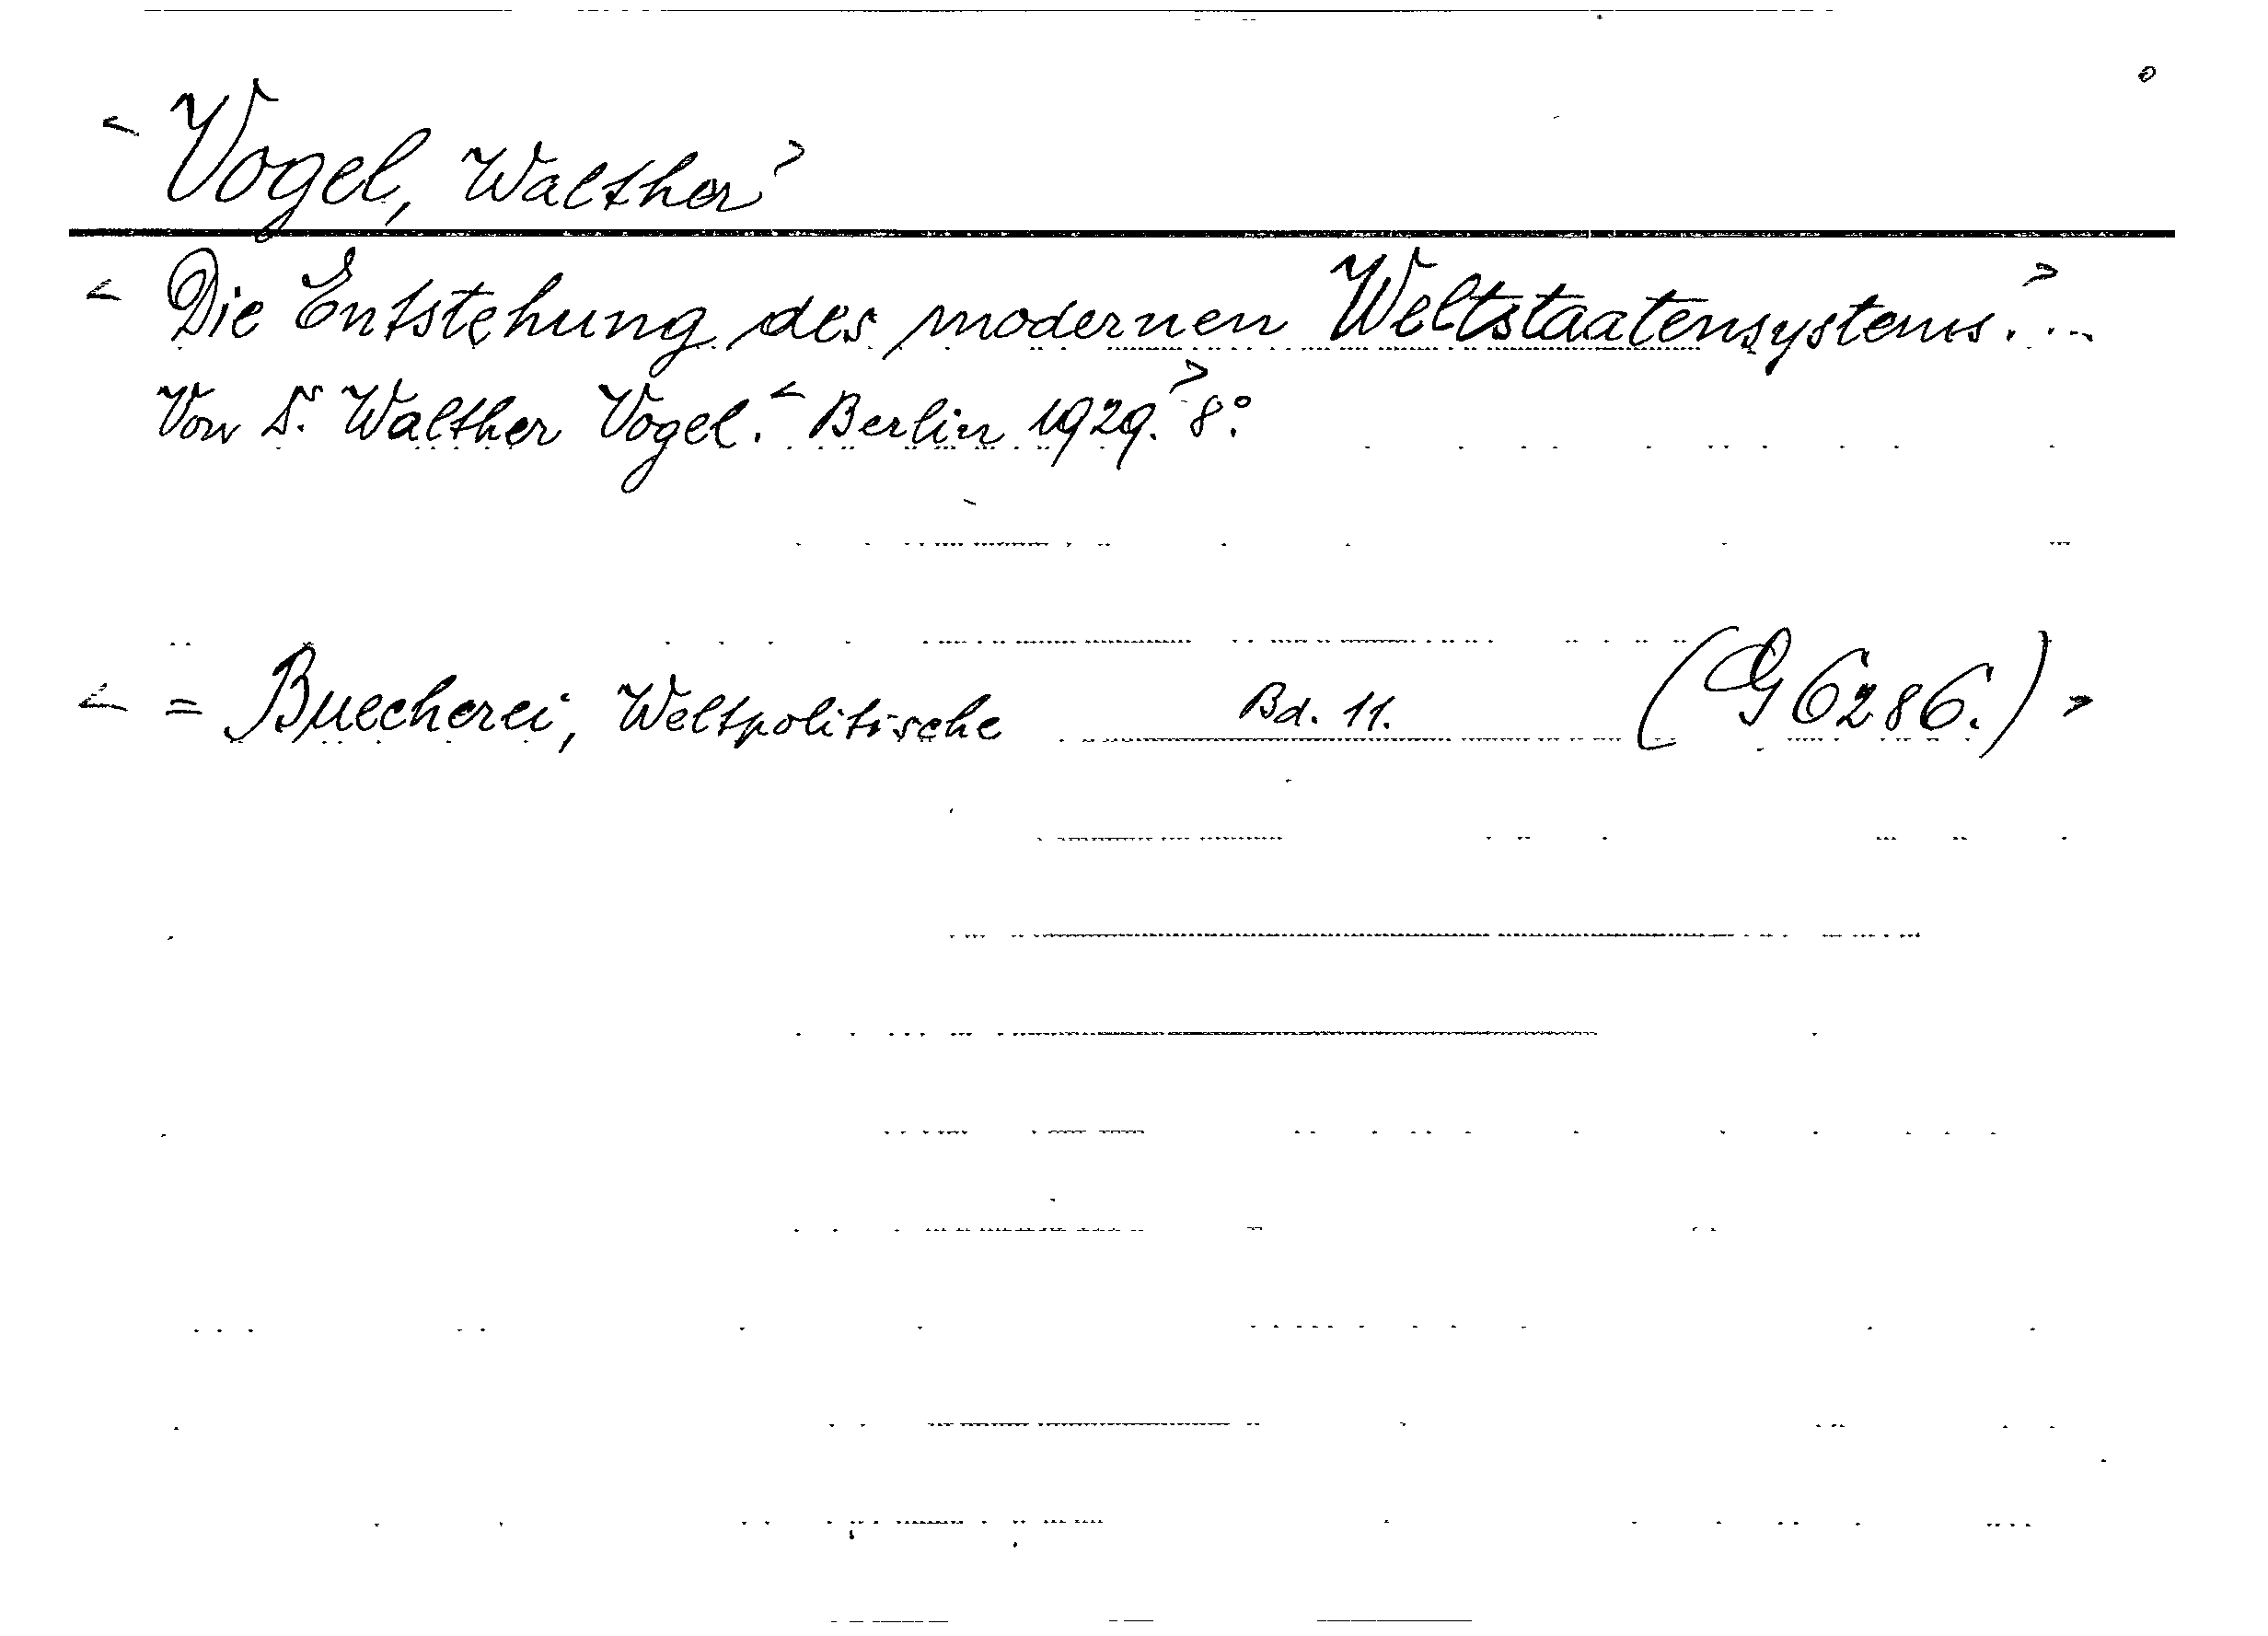 < Vogel, Walther >
< Die Entstehung des modernen Weltstaatensystems. > ..
Von Dr. Walther Vogel. < Berlin 1929. > 8°.
< = Buecherei, Weltpolitische Bd. 11. (G 6286.) >